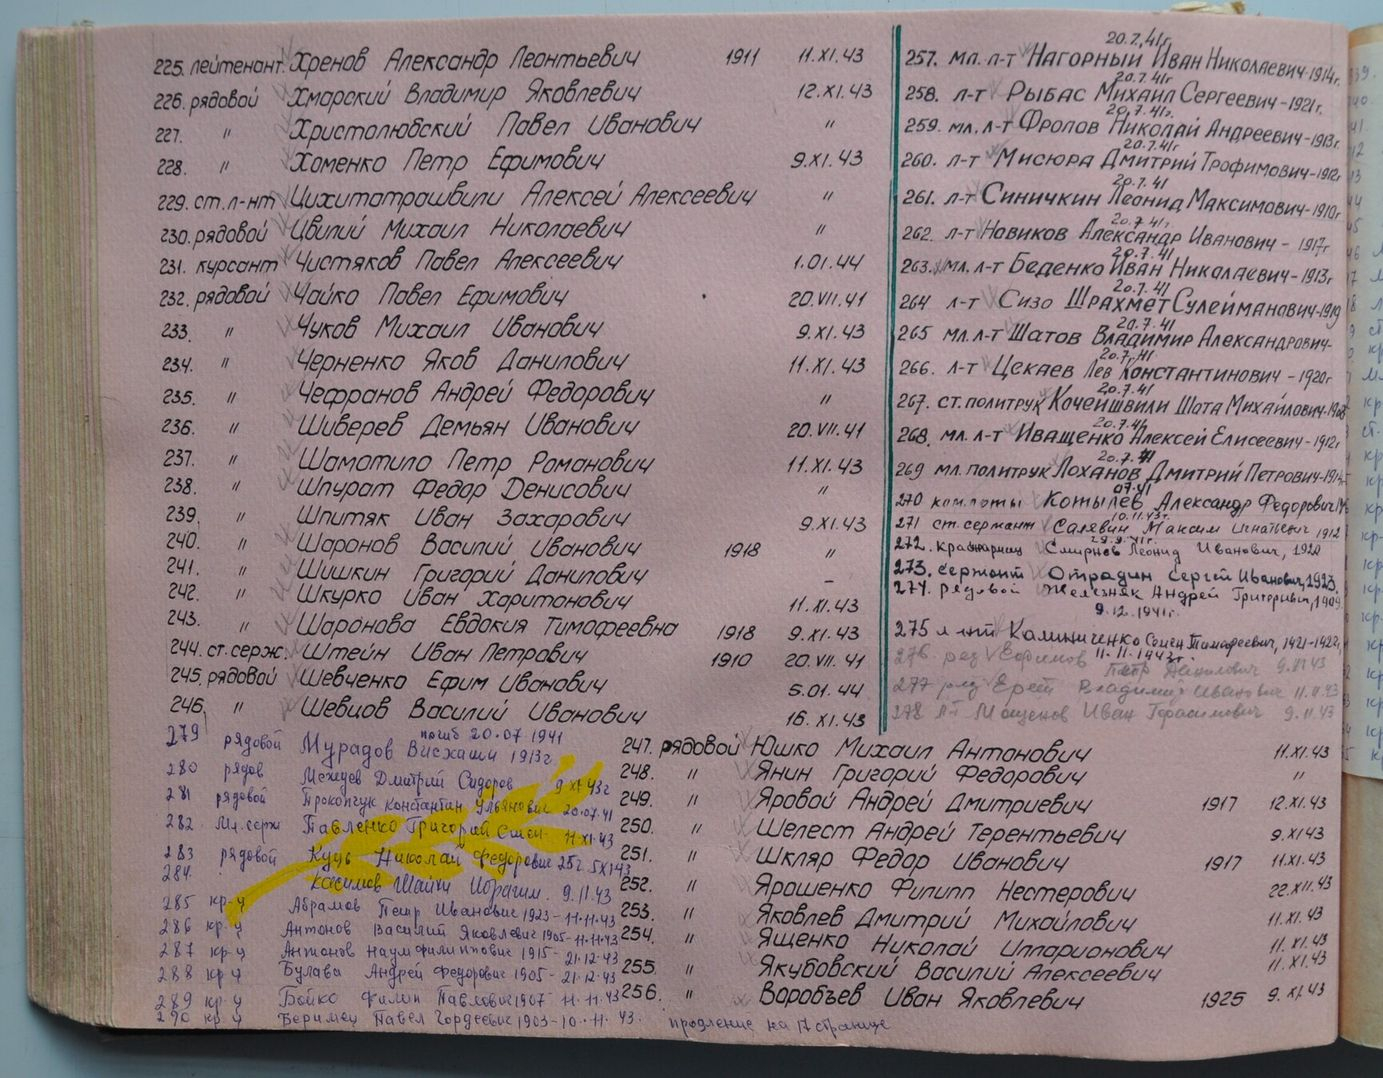 225. лейтенант. Хренов Александр Леонтьевич 1911 11.XI.43
226. рядовой Хмарский Владимир Яковлевич 12.XI.43
227. " Христолюбский Павел Иванович "
228. " Хоменко Петр Ефимович 9.XI.43
229. ст.л-нт Цихитатрашвили Алексей Алексеевич "
230. рядовой Цвилий Михаил Николаевич "
231. курсант Чистяков Павел Алексеевич 1.01.44
232. рядовой Чайко Павел Ефимович 20.VII.41
233. " Чуков Михаил Иванович 9.XI.43
234. " Черненко Яков Данилович 11.XI.43
235. " Чефранов Андрей Федорович "
236. " Шиверев Демьян Иванович 20.VII.41
237. " Шамотило Петр Романович 11.XI.43
238. " Шпурат Федор Денисович "
239. " Шпитяк Иван Захарович 9.XI.43
240. " Шаронов Василий Иванович 1918 "
241. " Шишкин Григорий Данилович -
242. " Шкурко Иван Харитонович 11.XI.43
243. " Шаронова Евдокия Тимофеевна 1918 9.XI.43
244. ст.серж. Штейн Иван Петрович 1910 20.VII.41
245. рядовой Шевченко Ефим Иванович 5.01.44
246. " Шевцов Василий Иванович 16.XI.43
погиб 20.07 1941
279 рядовой Мурадов 1913г
280 рядов Межуев Дмитрий Сидоров 9 XI 43г
281 рядовой Прокопчук Константин Ульянович 20.07.41
282 Мл.серж Павленко Григорий Семен 11 XI.43
283 рядовой Куць Николай Федорович 25г. 5 XI 43
284. Касимов Шайхи Ибрагим. 9.11.43
285 кр-ц Абрамов Петр Иванович 1923-11.11.43
286 кр-ц Антонов Василий Яковлевич 1905-11.11.43
287 кр-ц Антонов Наум Филиппович 1915-21.12.43
288 кр-ц Булава Андрей Федорович 1905-21.12.43
289 кр-ц Бойко Филип Павлович 1907-11.11.43
290 кр-ц Беримец Павел Гордеевич 1903-10.11.43. продление на 17 странице
247. рядовой Юшко Михаил Антонович 11.XI.43
248. " Янин Григорий Федорович "
249. " Яровой Андрей Дмитриевич 1917 12.XI.43
250. " Шелест Андрей Терентьевич 9.XI 43
251. " Шкляр Федор Иванович 1917 11.XI.43
252. " Ярошенко Филипп Нестерович 22.XII.43
253. " Яковлев Дмитрий Михайлович 11.XI.43
254. " Ященко Николай Илларионович 11.XI.43
255. " Якубовский Василий Алексеевич 11.XI.43
256. " Воробъев Иван Яковлевич 1925 9.XI.43
20.7.41г.
257. мл. л-т Нагорный Иван Николаевич-1914г.
20.7.41г
258. л-т Рыбас Михаил Сергеевич-1921г.
20.7.41г.
259. мл. л-т Фролов Николай Андреевич-1913г.
20.7.41г
260. л-т Мисюра Дмитрий Трофимович-1912г
20.7.41
261. л-т Синичкин Леонид Максимович-1910г
20.7.41г.
262. л-т Новиков Александр Иванович - 1917г
20.7.41
263. мл. л-т Беденко Иван Николаевич-1913г
20.7.41
264 л-т Сизо Шрахмет Сулейманович-1919
20.7.41
265 мл. л-т Шатов Владимир Александрович-
20.7.41
266. л-т Цекаев Лев Константинович - 1920г
20.7.41
267. ст.политрук Кочейшвили Шота Михайлович-1908
20.7.41
268. мл. л-т Иващенко Алексей Елисеевич-1912г
20.7.41
269 мл. политрук Лоханов Дмитрий Петрович-1914
07.41
270 ком.роты Котылев Александр Федорович
10.11.43г.
271 ст.сержант Салевин Максим Игнатьевич 1912
29.9.41г.
272. Смирнов Леонид Иванович, 1920
273. сержант Отрадин Сергей Иванович, 1923.
274. рядовой Железняк Андрей Григорьевич, 1909.
9.12.1941г.
275 л-нт Калиниченко Семен Тимофеевич, 1421-1922г,
11-11-1943г.
276. ряд Ефимов Петр Данилович 9.11 43
277 ряд Ерет Владимир Иванович 11.11.43
278 л-т Мащенов Иван Герасимович 9.11.43